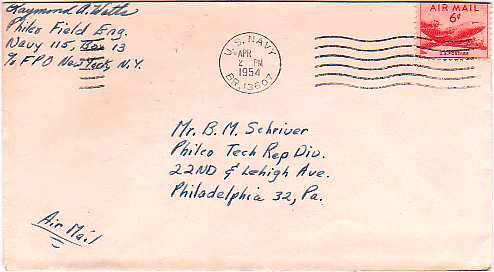 Raymond A. Watts
Philco Field Eng.
Navy 115, Box 13
% FPO New York, N.Y.
AIR MAIL
6¢
U.S. NAVY
APR
2 PM
1954
BR. 13607
Mr. B. M. Schriver
Philco Tech Rep Div.
22ND & Lehigh Ave.
Philadelphia 32, Pa.
Air Mail